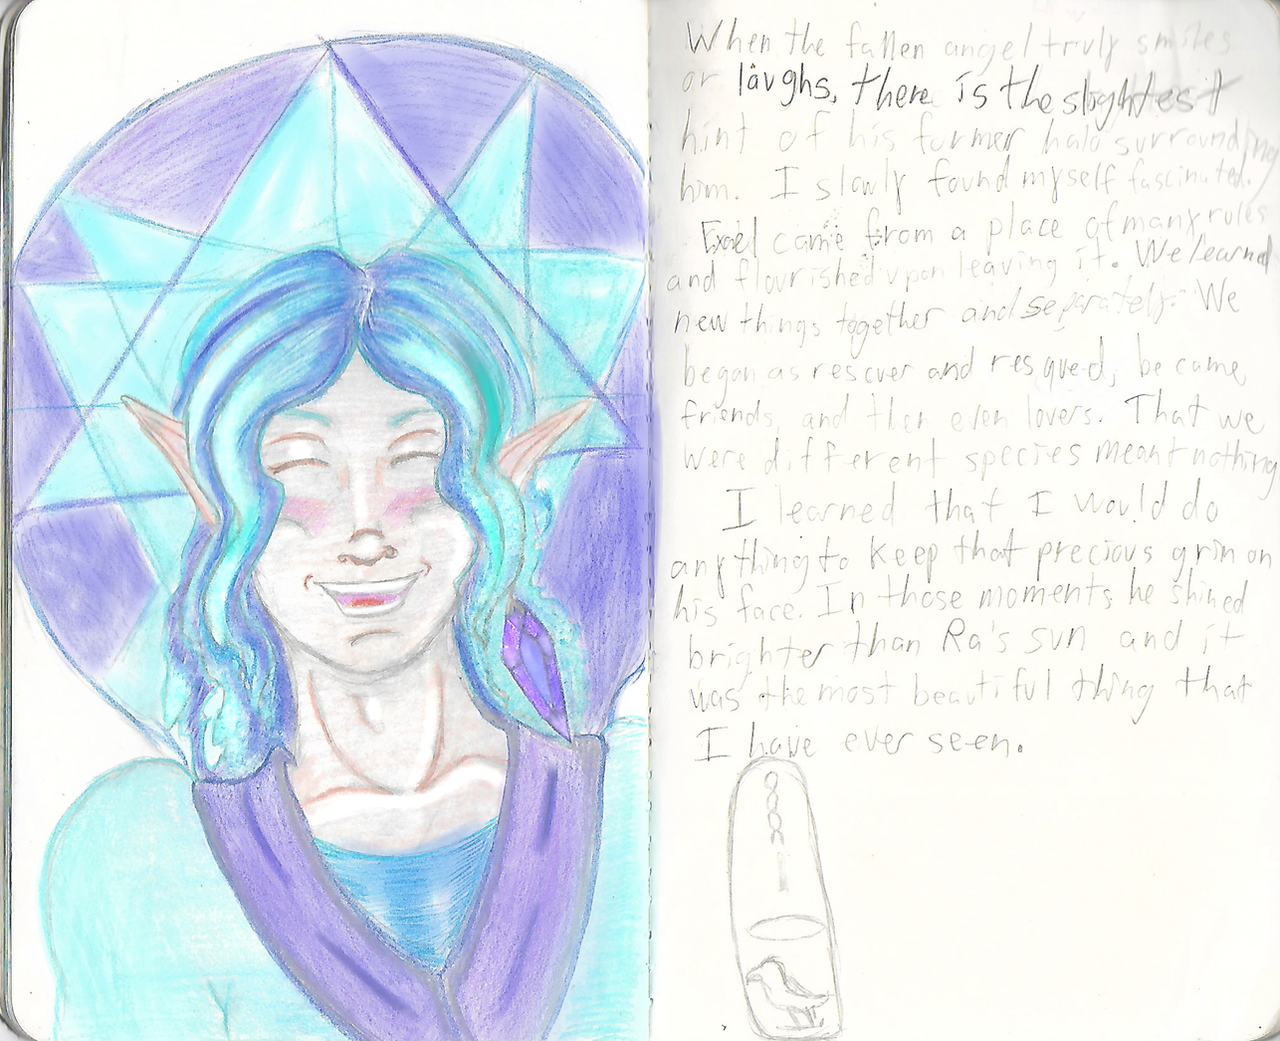 When the fallen angel truly smiles
or laughs, there is the slightest
hint of his former halo surrounding
him. I slowly found myself fascinated.
came from a place of many rules
and flourished upon leaving it. We learned
new things together and separately. We
began as rescuer and resqued, became
friends, and then even lovers. That we
were different species meant nothing
I learned that I would do
anything to keep that precious grin on
his face. In those moments he shined
brighter than Ra's sun and it
was the most beautiful thing that
I have ever seen.